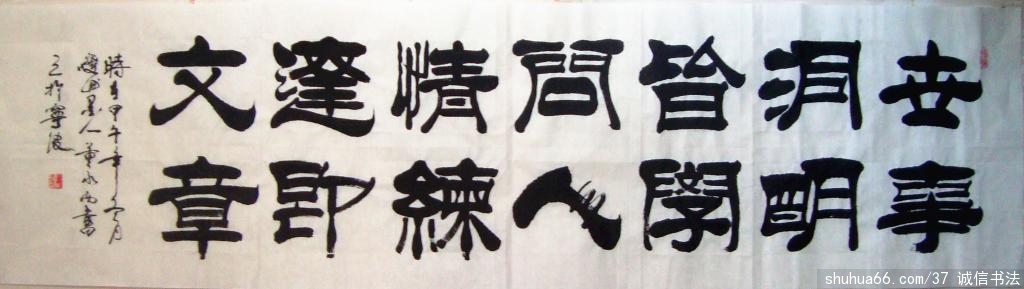 世事
洞明
皆學
問人
情練
達即
文章
時在甲午年冬月
墨人董永書
於寧陵
shuhua66.com/37 诚信书法